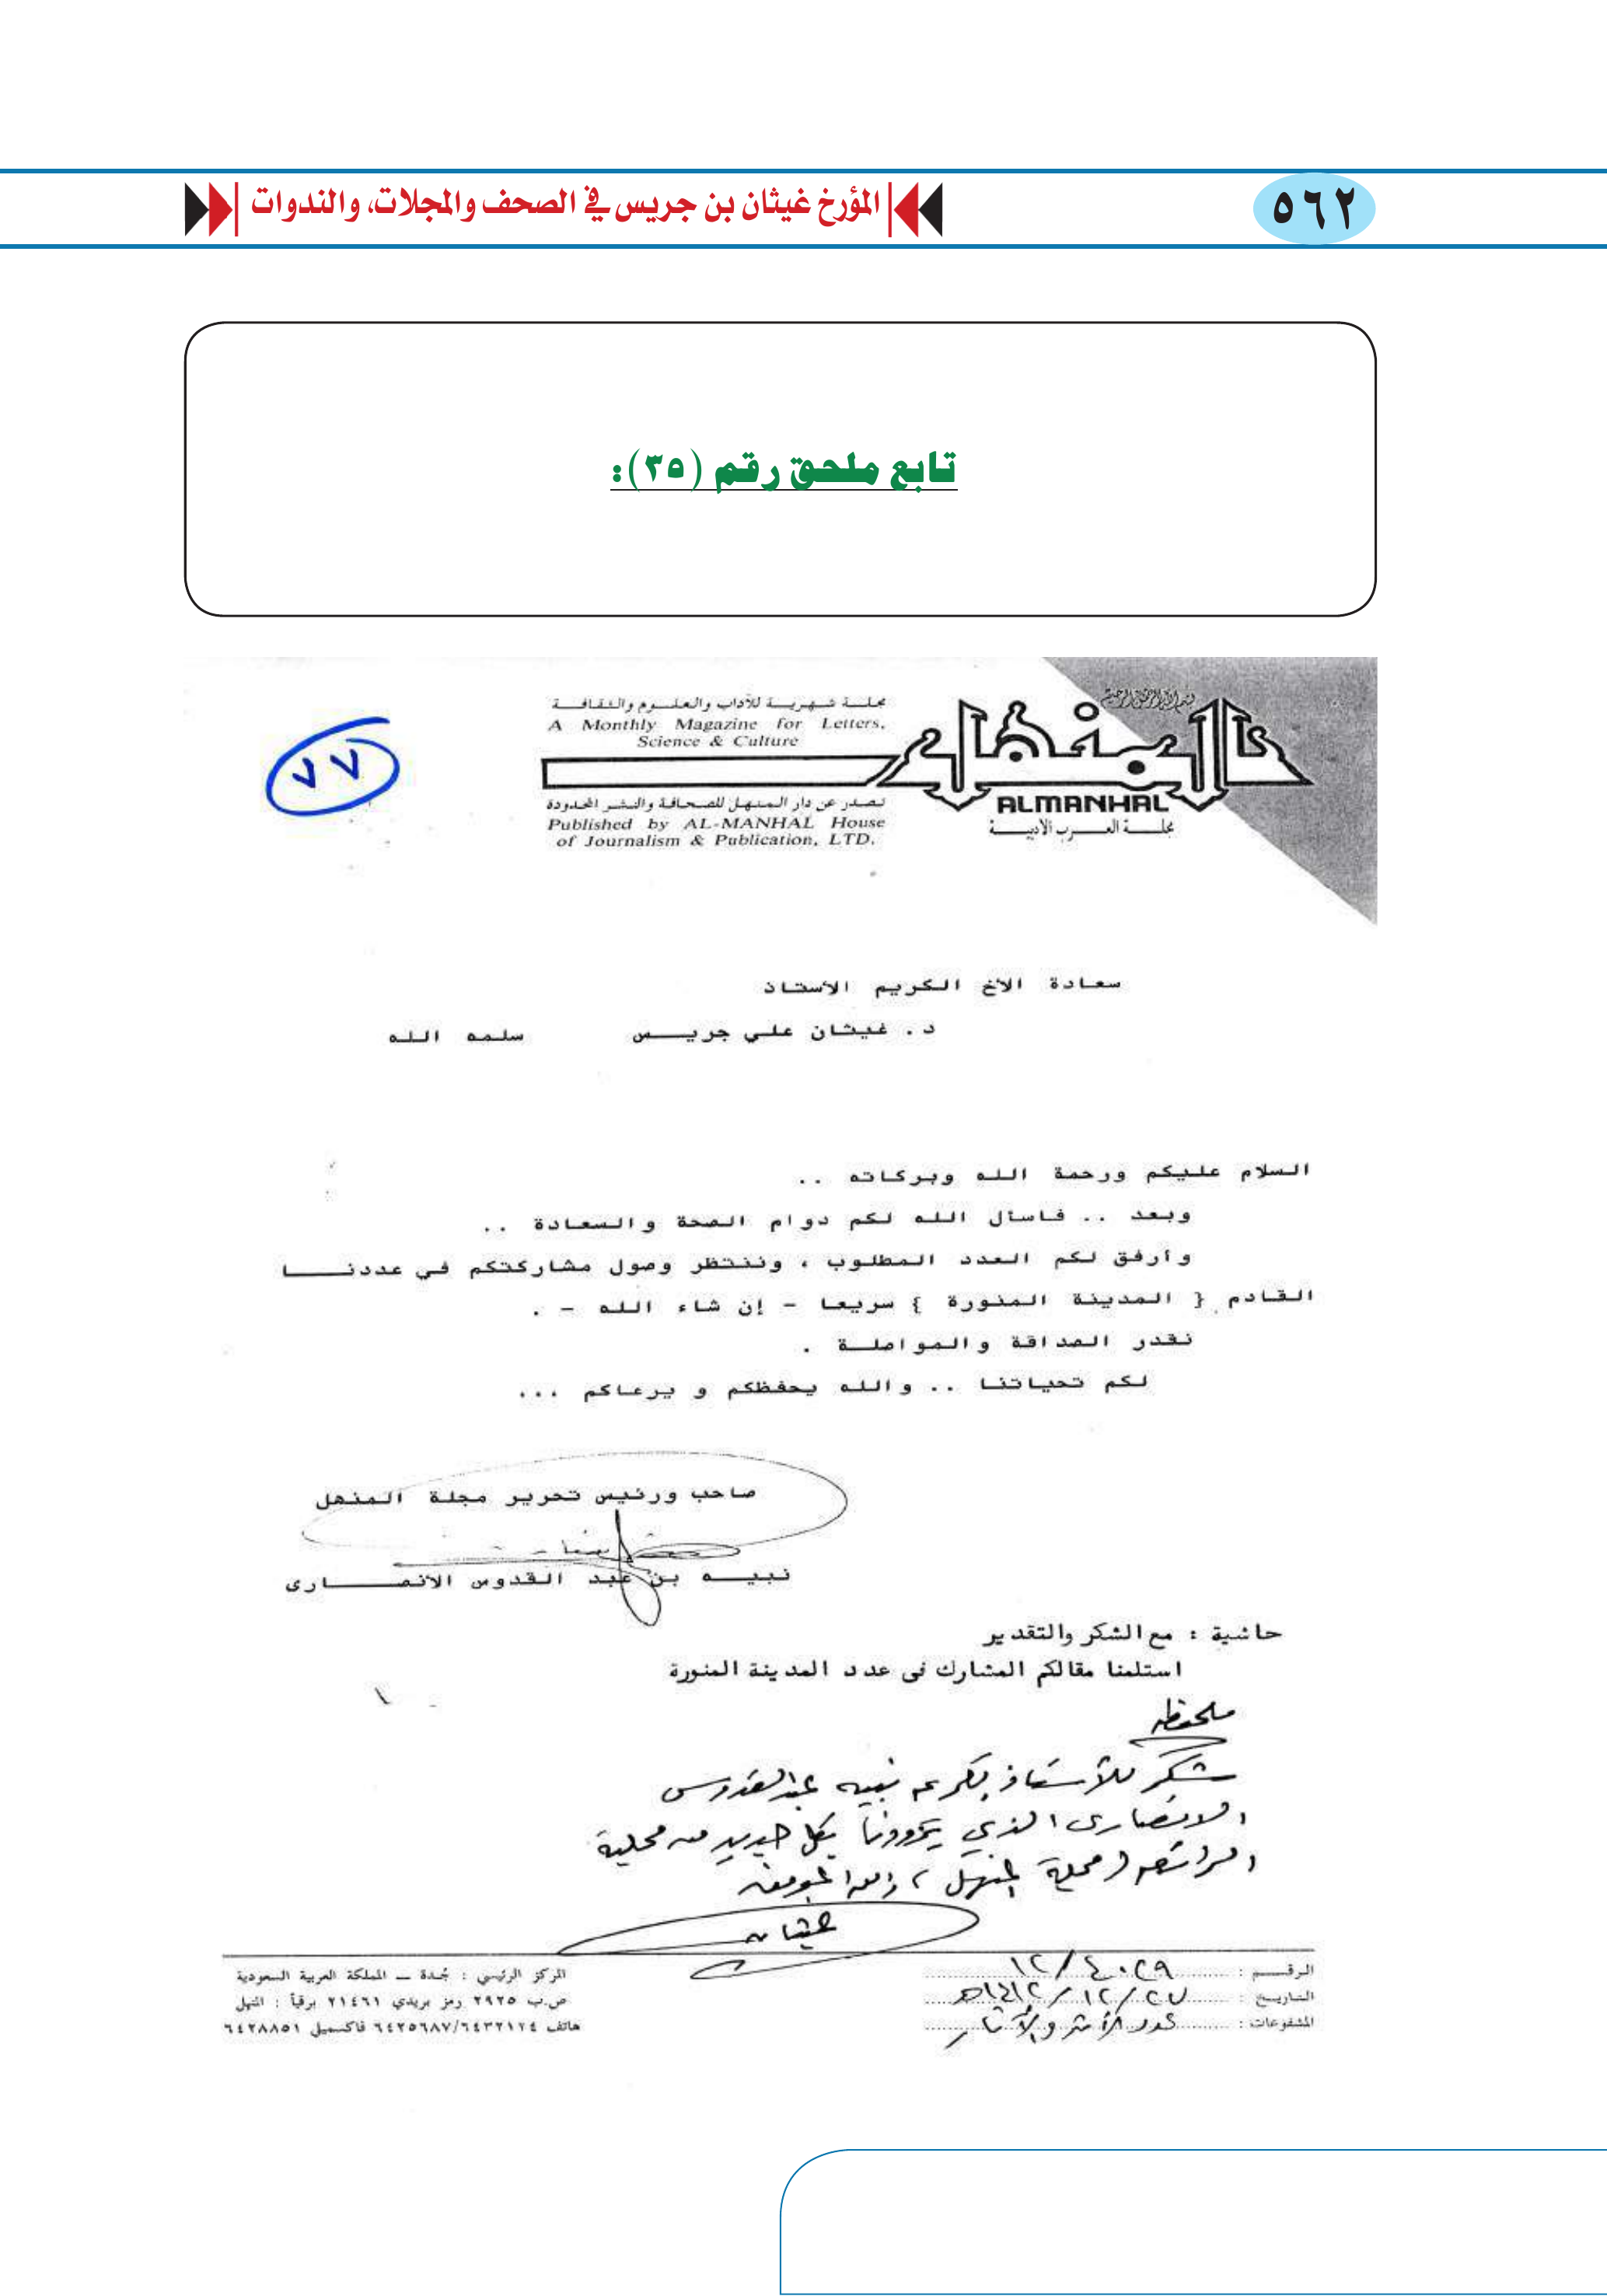 ٥٦٢
المؤرخ غيثان بن جريس في الصحف والمجلات، والندوات
تابع ملحق رقم (٣٥):
بسم الله الرحمن الرحيم
المنهل
ALMANHAL
مجلــة العــرب الأدبيــة
مجلــة شــهريــة للآداب والعلــوم والثقافــة
A Monthly Magazine for Letters,
Science & Culture
تصدر عن دار المنهل للصحافة والنشر المحدودة
Published by AL-MANHAL House
of Journalism & Publication, LTD.
٧٧
سعادة الأخ الكريم الأستاذ
د. غيثان علي جريــس سلمه الله
السلام عليكم ورحمة الله وبركاته ..
وبعد .. فاسأل الله لكم دوام الصحة والسعادة ..
وأرفق لكم العدد المطلوب ، وننتظر وصول مشاركتكم في عددنــا
القادم { المدينة المنورة } سريعا - إن شاء الله - .
نقدر الصداقة والمواصلـة .
لكم تحياتنا .. والله يحفظكم و يرعاكم ...
صاحب ورئيس تحرير مجلة المنهل
نبيــه بن عبد القدوس الانصــارى
حاشية : مع الشكر والتقدير
استلمنا مقالكم المشارك فى عدد المدينة المنورة
ملحوظه
شكر للأستاذ الكريم نبيه عبدالقدوس
الانصارى الذي يزودنا بكل جديد من مجلته
مجلة المنهل ، والله الموفق
غيثان
الرقــم : ١٢/٤٠٢٩
التاريــخ : ٢٧/١٢/١٤١٢هـ
المشفوعات :
المركز الرئيسي : جُـدة ــ المملكة العربية السعودية
ص.ب ٢٩٢٥ رمز بريدي ٢١٤٦١ برقياً : المنهل
هاتف ٦٤٢٥٦٨٧/٦٤٣٢١٢٤ فاكسميل ٦٤٢٨٨٥١